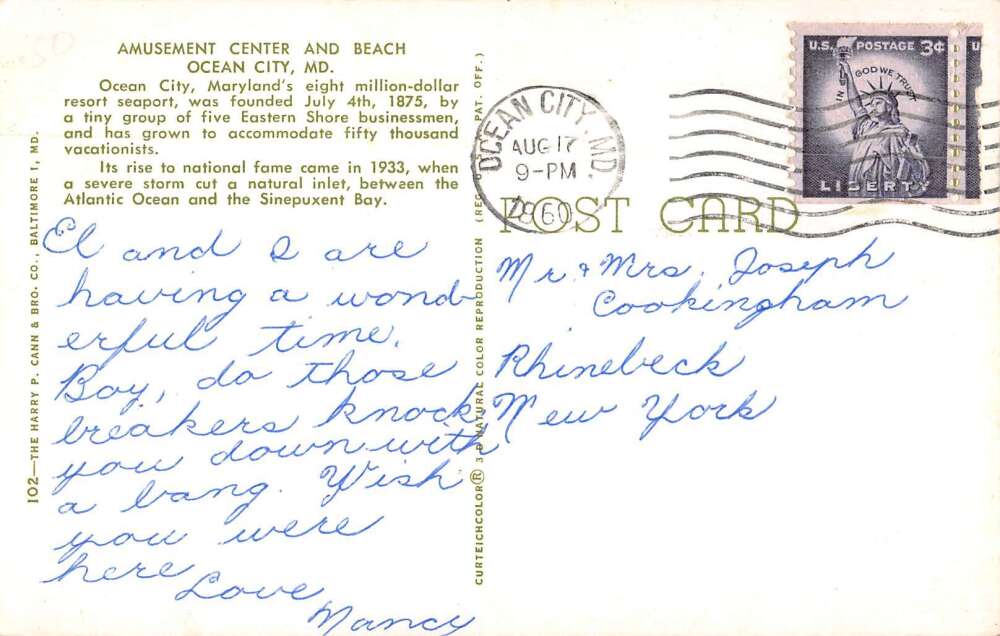 AMUSEMENT CENTER AND BEACH
OCEAN CITY, MD.
Ocean City, Maryland's eight million-dollar
resort seaport, was founded July 4th, 1875, by
a tiny group of five Eastern Shore businessmen,
and has grown to accommodate fifty thousand
vacationists.
Its rise to national fame came in 1933, when
a severe storm cut a natural inlet, between the
Atlantic Ocean and the Sinepuxent Bay.
El and I are
having a wond-
erful time.
Boy, do those
breakers knock
you down with
a bang. Wish
you were
here
Love
Nancy
102—THE HARRY P. CANN & BRO. CO., BALTIMORE 1, MD.
CURTEICHCOLOR® 3-D NATURAL COLOR REPRODUCTION (REG. U.S. PAT. OFF.)
POST CARD
OCEAN CITY, MD.
AUG 17
9-PM
1960
U.S. POSTAGE 3¢
IN GOD WE TRUST
LIBERTY
U
Mr & Mrs. Joseph
Cookingham
Rhinebeck
New York